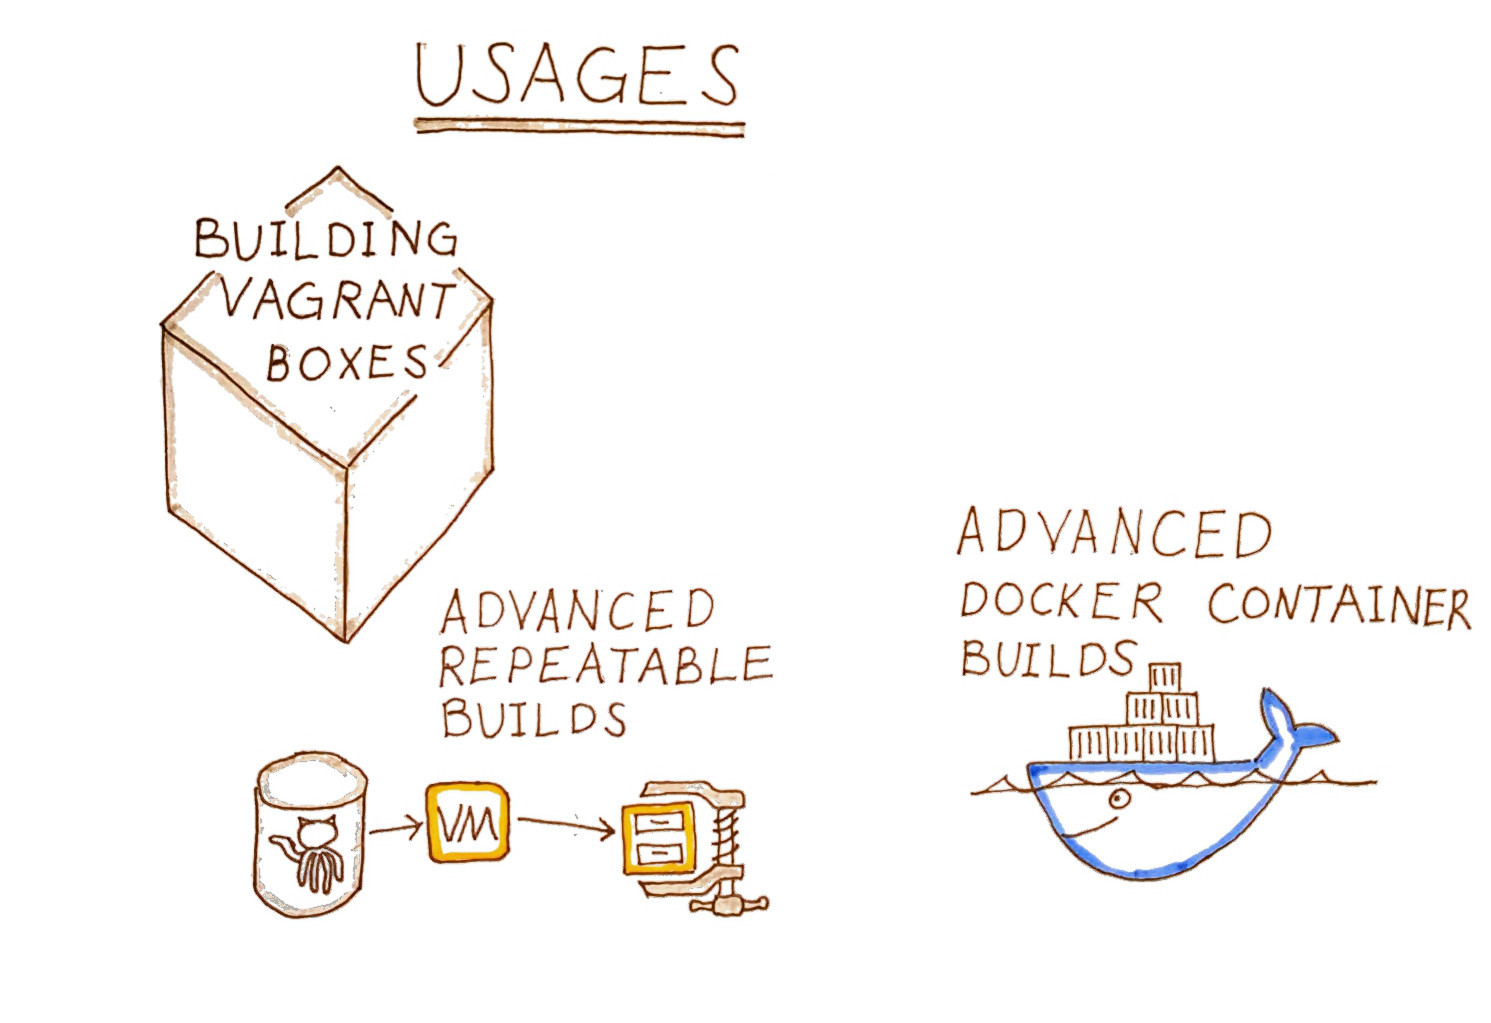 USAGES
BUILDING
VAGRANT
BOXES
ADVANCED
REPEATABLE
BUILDS
VM
ADVANCED
DOCKER CONTAINER
BUILDS